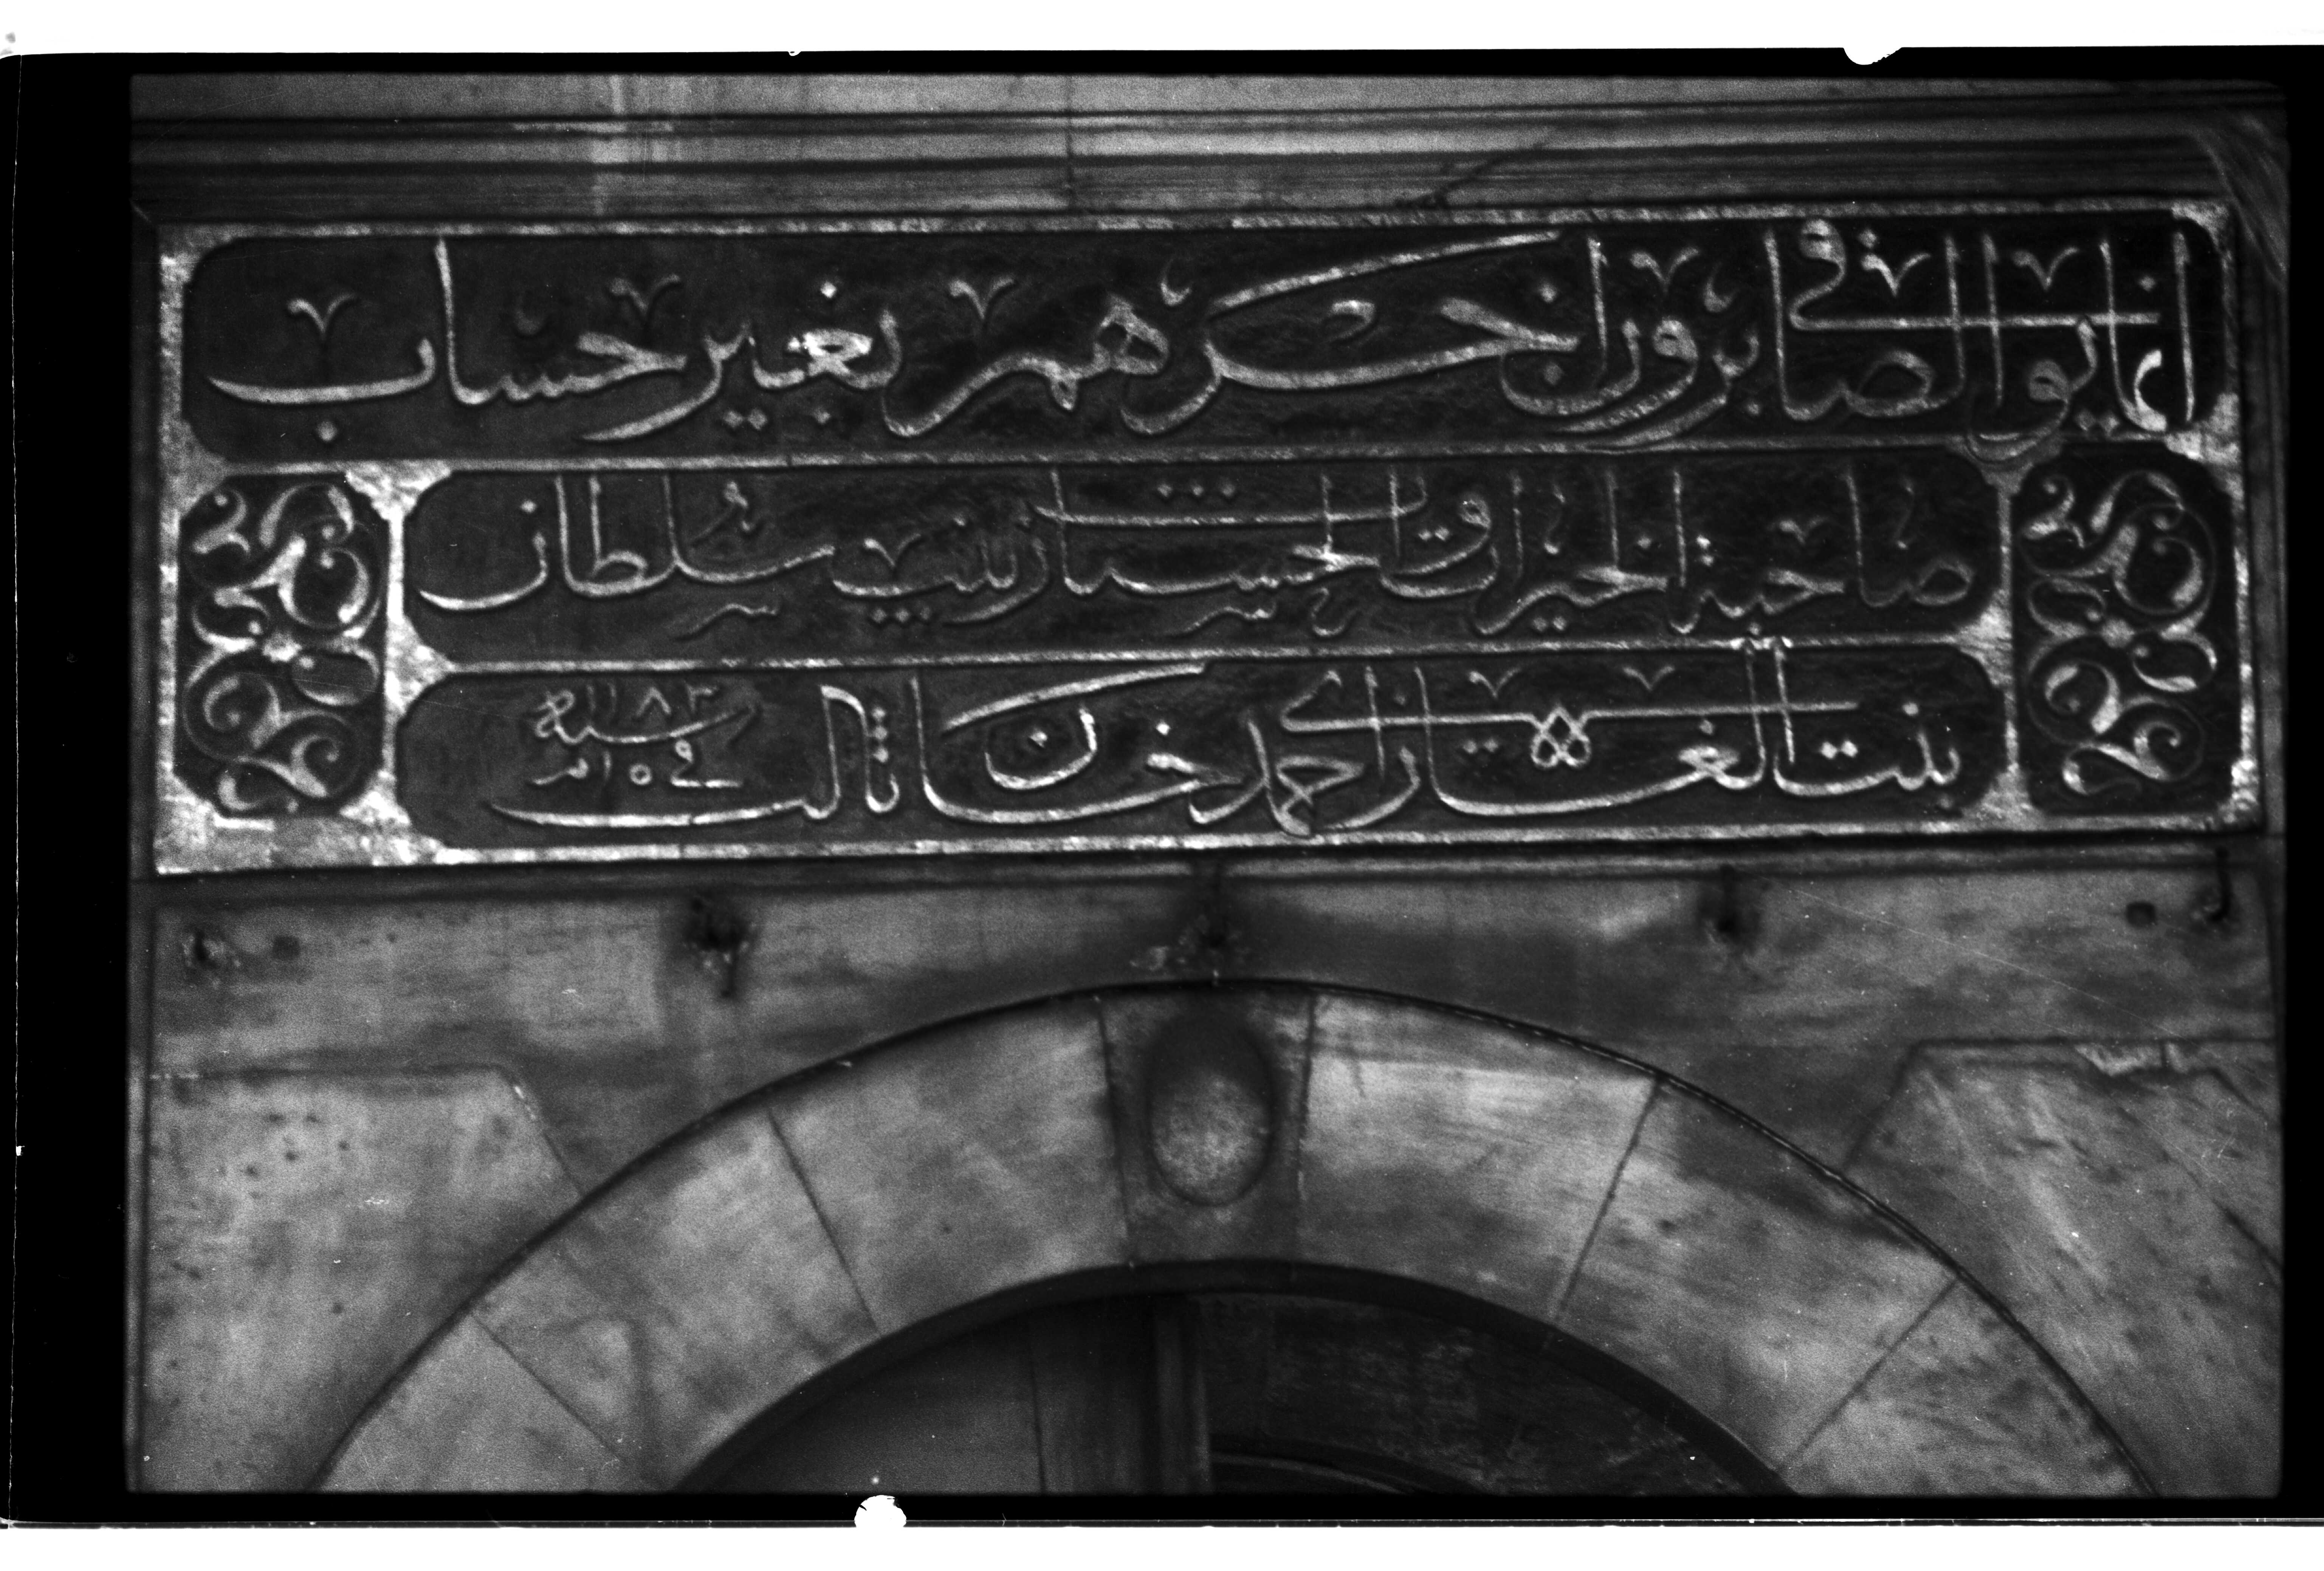 انما يوفى الصابرون اجرهم بغير حساب
صاحبة الخيرات والحسنات زينب سلطان
بنت الغازى احمد خان ثالث
فى ٥ ام سنه ١١٨٣